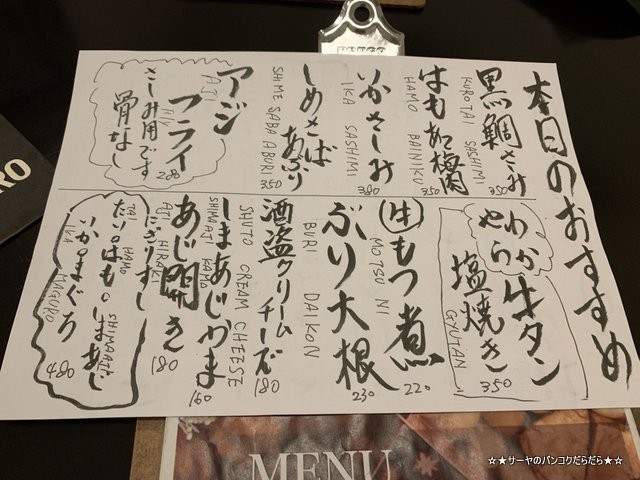 本日のおすすめ
黒鯛さしみ
KUROTAI SASHIMI
350
はもあぶり梅肉
HAMO BAINIKU
350
いかさしみ
IKA SASHIMI
380
しめさばあぶり
SHIME SABA ABURI
350
アジフライ
AJI
さしみ用です
骨なし
208
やわらか牛タン
塩焼き
GYUTAN
350
牛もつ煮
MOTSU NI
220
ぶり大根
BURI DAIKON
230
酒盗クリームチーズ
SHUTO CREAM CHEESE
180
しまあじかま
SHIMAAJI KAMA
160
あじ開き
AJI HIRAKI
180
にぎりすし
たい。はも。しまあじ
TAI HAMO SHIMAAJI
いか。まぐろ
IKA MAGURO
480
MENU
☆★サーヤのバンコクだらだら★☆